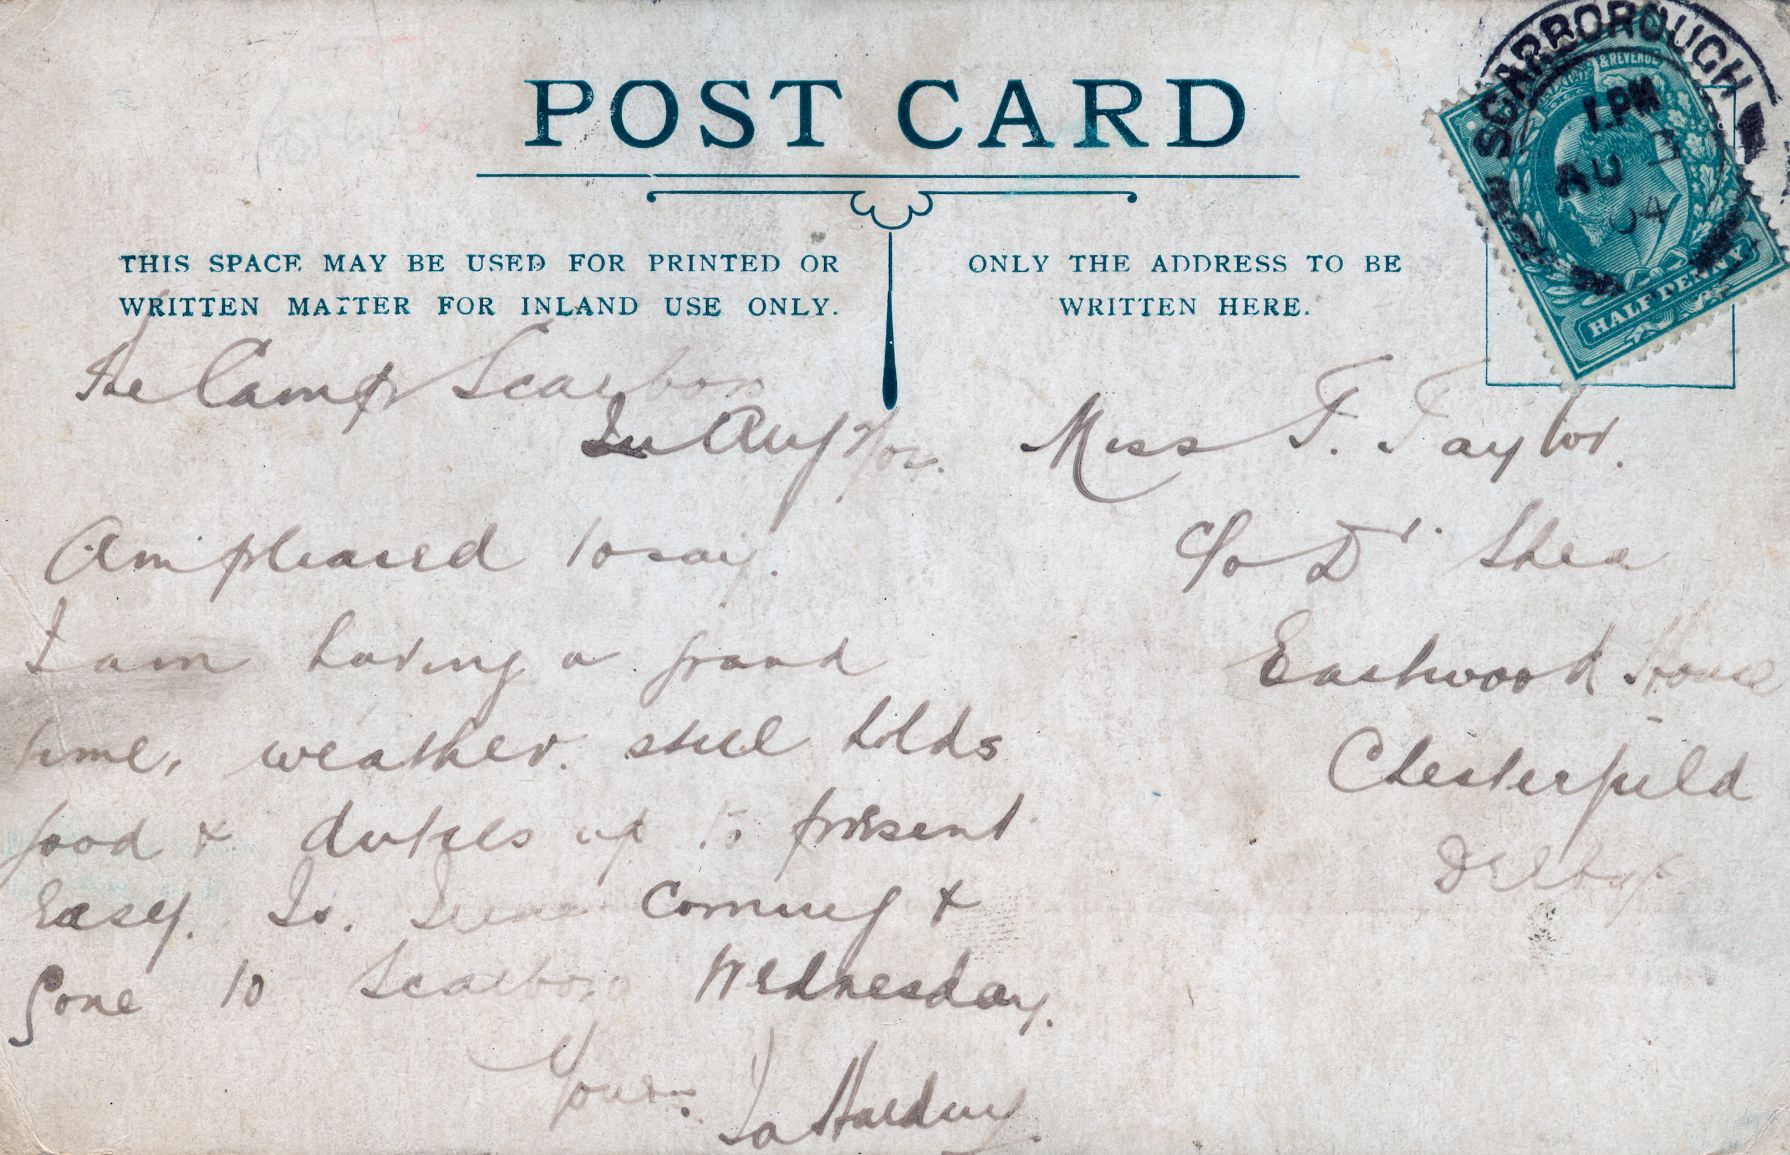 POST CARD
THIS SPACE MAY BE USED FOR PRINTED OR
WRITTEN MATTER FOR INLAND USE ONLY.
ONLY THE ADDRESS TO BE
WRITTEN HERE.
SCARBOROUGH
1.PM
AU
04
& REVENUE
HALFPENNY
The Camp Scarboro
Aug
Am pleased to say.
I am having a grand
time, weather. still holds
good & duties up to present
Easy. Is. Coming &
gone to Scarboro Wednesday.
Yours.
Harding.
Miss F. Taylor.
c/o Dr. Shea
Eastwood House
Chesterfield